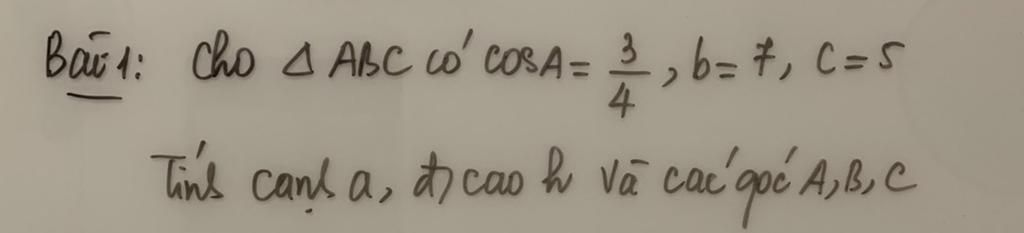 Bài 1: Cho Δ ABC có cosA = 3/4, b = 7, c = 5
Tính cạnh a, đ) cao h và các góc A, B, C